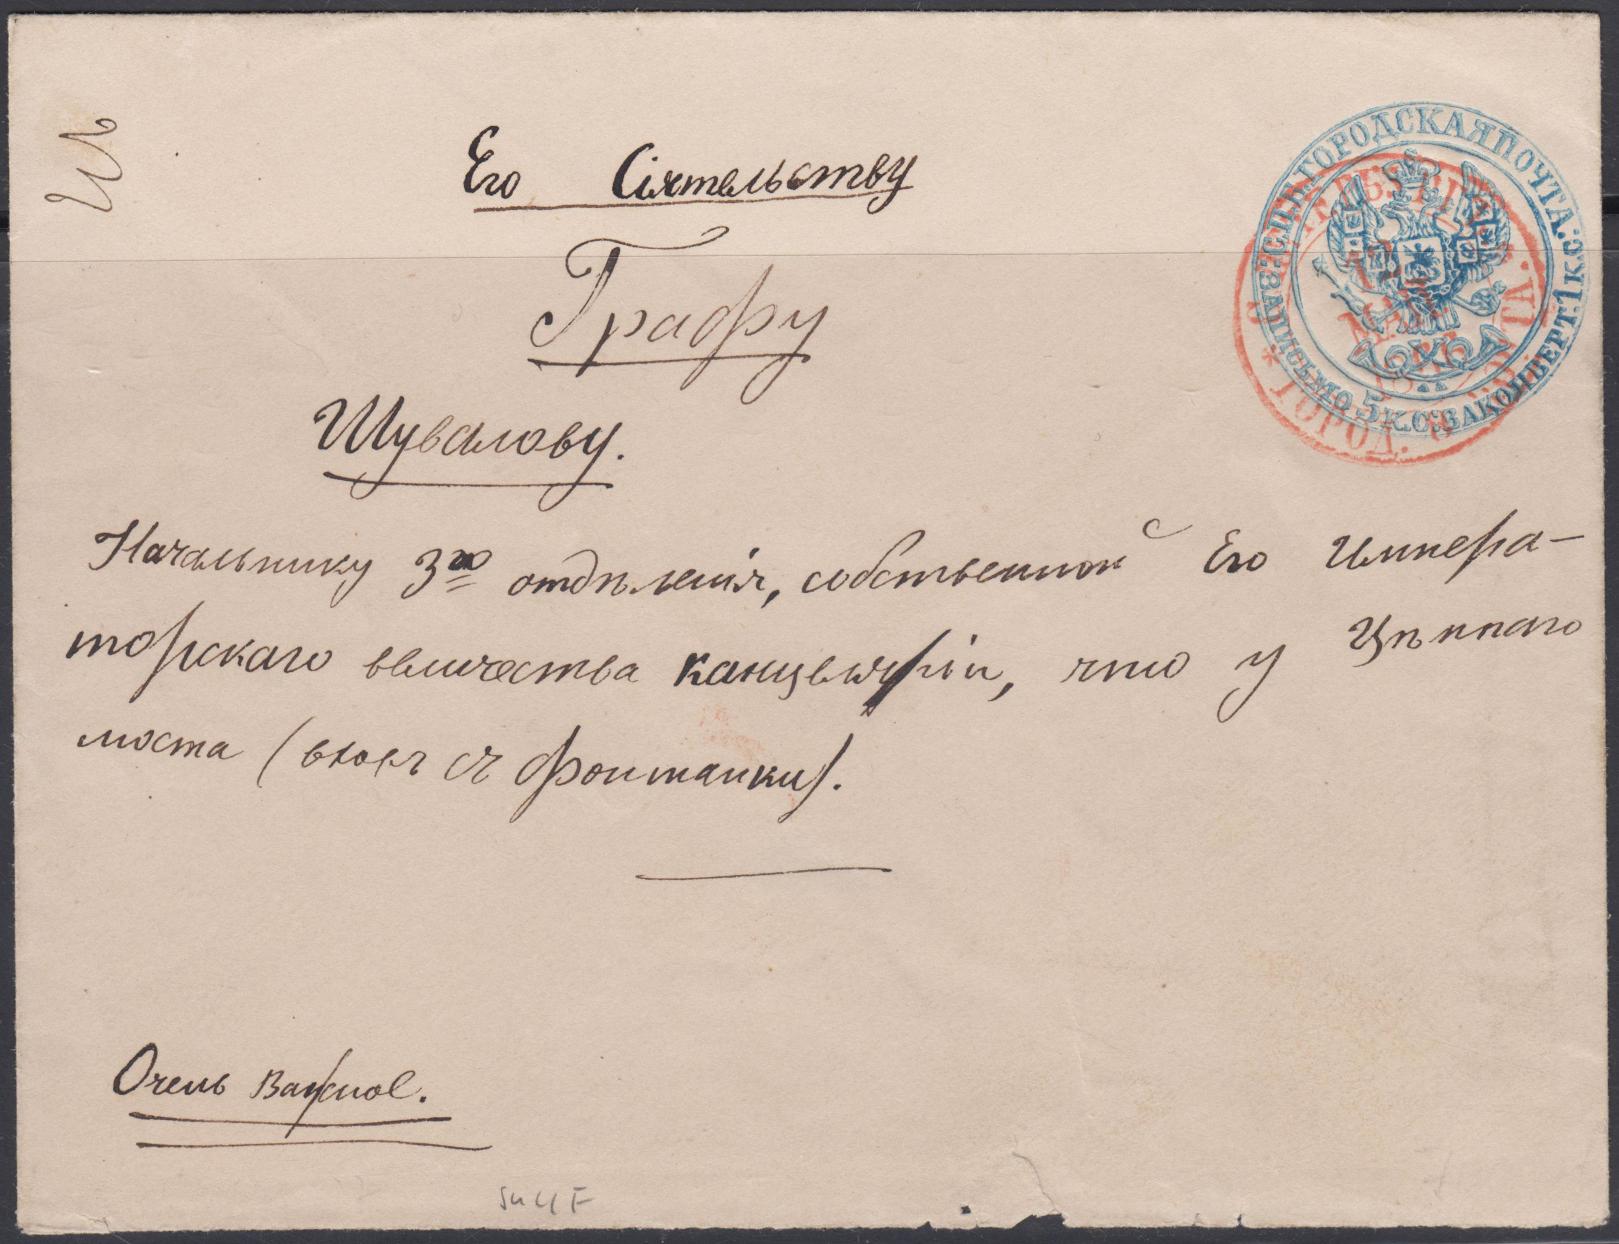 Его Сіятельству
Графу
Шувалову.
Начальнику 3го отдѣленія, собственной Его Импера-
торскаго величества канцеляріи, что у Цѣпнаго
моста (входъ съ Фонтанки).
Очень Важное.
С.П.Б. ГОРОДСКАЯ ПОЧТА:
ЗА ПИСЬМО 5 К.С. ЗА КОНВЕРТ. 1 К.С.
ГОРОД. ПОЧТА.